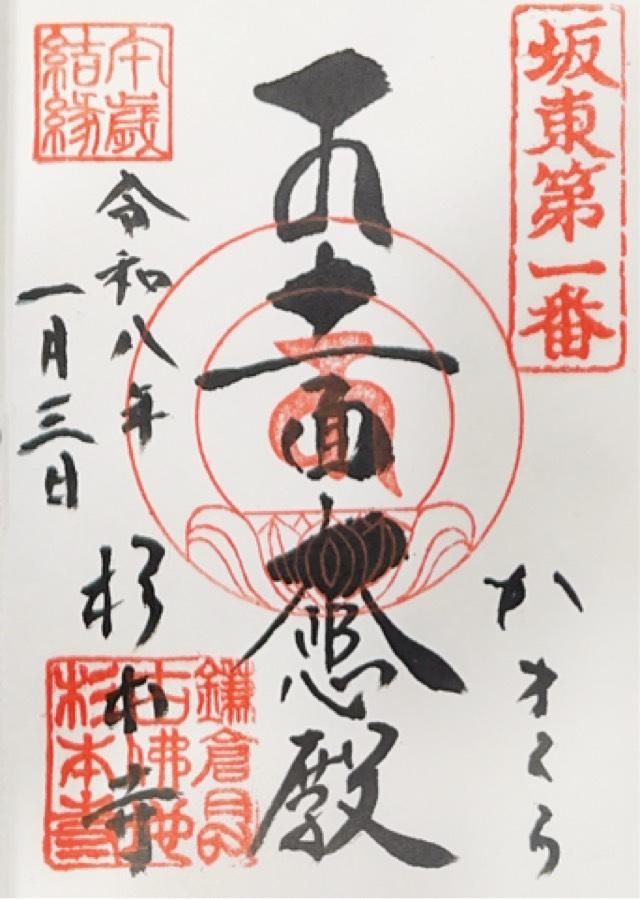 坂東第一番
かまくら
十一面大悲殿
午歳
結縁
令和八年
一月三日
杉本寺
鎌倉最
古佛地
杉本寺